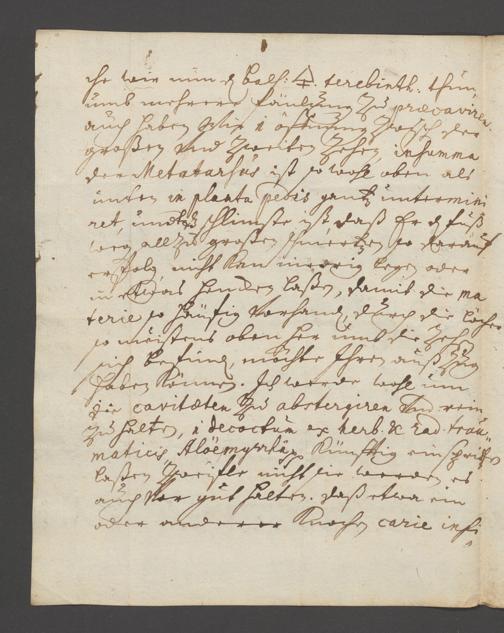 ehe wir nun d Bals: 4. terebinth. thun,
umb mehrere fäulung zu præcaviren
auch haben wir i öffnung zwisch der
großen und zweiten Zehen, in summa
der Metatarsus ist so wohl oben als
unten in planta pedis gantz untermini
ret, und schlimste ist daß Er d fuß
weg allzu großen schmertzen so darauf
erfolg, nicht kan niedrig legen oder
laßen, damit die ma
terie so häufig vorhand, durch die löcher
so meistens oben her umb die Zehen
sich befind möchte Ihren außzug
haben können. Ich werde wohl um
die cavitæten zu abstergiren und rein
zu halten, i decoctum ex herb & rad trau
maticis Aloëmyrrh künfftig einspritzen
laßen zweifle nicht sie werden es
auch vor gut halten. daß etwa ein
oder anderer Knochen carie infi